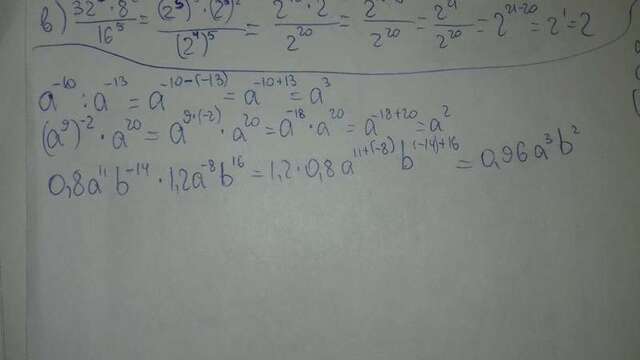 в) 32 · 8 / 16⁵ = (2⁵) · (2³)² / (2⁴)⁵ = 2 · 2 / 2²⁰ = 2 / 2²⁰ = 2²¹ / 2²⁰ = 2²¹⁻²⁰ = 2¹ = 2
a⁻¹⁰ : a⁻¹³ = a⁻¹⁰⁻⁽⁻¹³⁾ = a⁻¹⁰⁺¹³ = a³
(a⁹)⁻² · a²⁰ = a^(9·(-2)) · a²⁰ = a⁻¹⁸ · a²⁰ = a⁻¹⁸⁺²⁰ = a²
0,8a¹¹b⁻¹⁴ · 1,2a⁻⁸b¹⁶ = 1,2 · 0,8a¹¹⁺⁽⁻⁸⁾ b⁽⁻¹⁴⁾⁺¹⁶ = 0,96a³b²